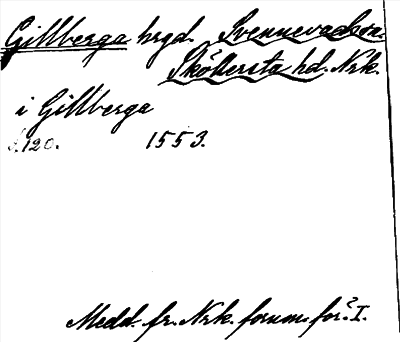 Gillberga hrgd. Svennevads sn.
Sköllersta hd. Nrk.
i Gillberga
s. 120. 1553.
Medd. fr. Nrk. fornm. för. I.